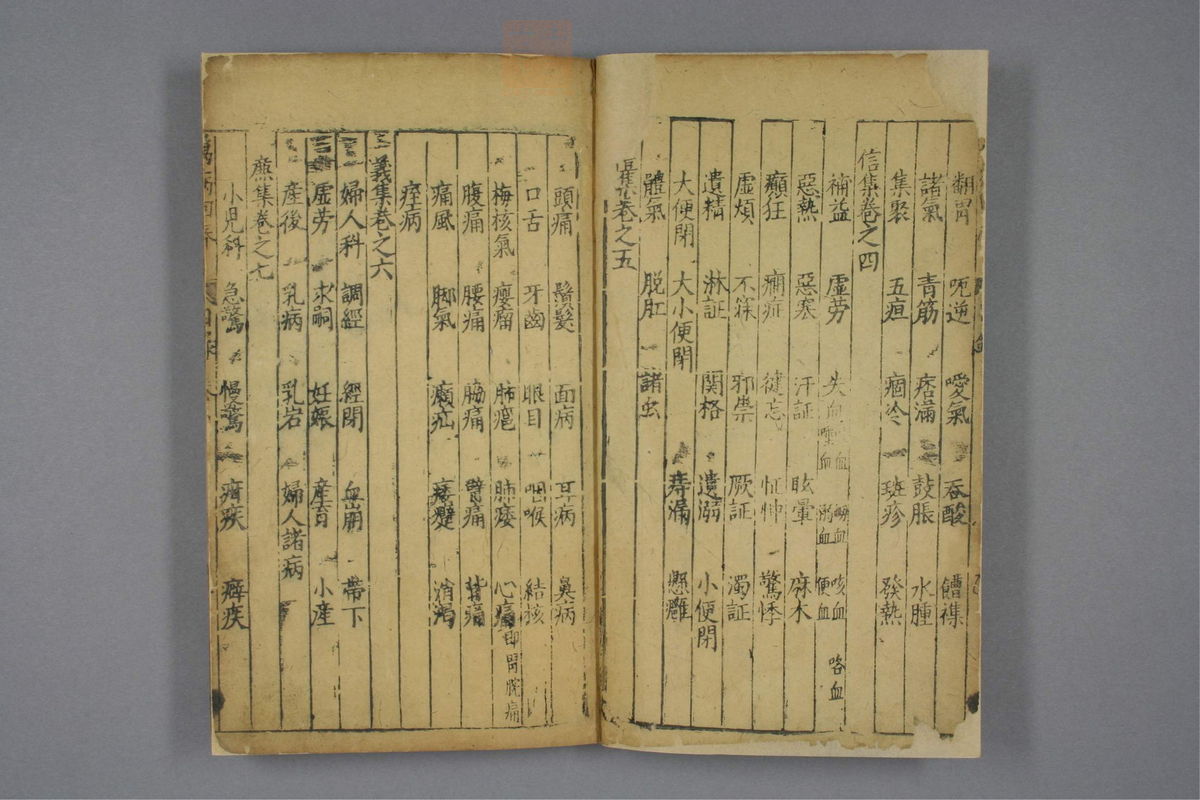 翻胃 呃逆 噯氣 吞酸 饐雜
諸氣 青筋 痞滿 鼓脹 水腫
集聚 五疸 痼冷 斑疹 發熱
信集卷之四
補益 虛劳 失血 衄血 咳血 咯血 嘔血 溺血 便血
惡熱 惡寒 汗証 眩暈 麻木
癲狂 癇症 健忘 怔忡 驚悸
虛煩 不寐 邪祟 厥証 濁証
遺精 淋証 関格 遺溺 小便閉
大便閉 大小便閉 痔漏 懸癰
體氣 脱肛 諸虫
集卷之五
頭痛 鬚髮 面病 耳病 鼻病
口舌 牙齒 眼目 咽喉 結核
梅核氣 癭瘤 肺癰 肺痿 心痛即胃脘痛
腹痛 腰痛 脇痛 臂痛 背痛
痛風 脚氣 癩疝 痿躄 消渴
痓病
義集卷之六
婦人科 調經 經閉 血崩 帶下
虛劳 求嗣 妊娠 產育 小產
產後 乳病 乳岩 婦人諸病
集卷之七
小児科 急驚 慢驚 疳疾 癖疾
萬病回春